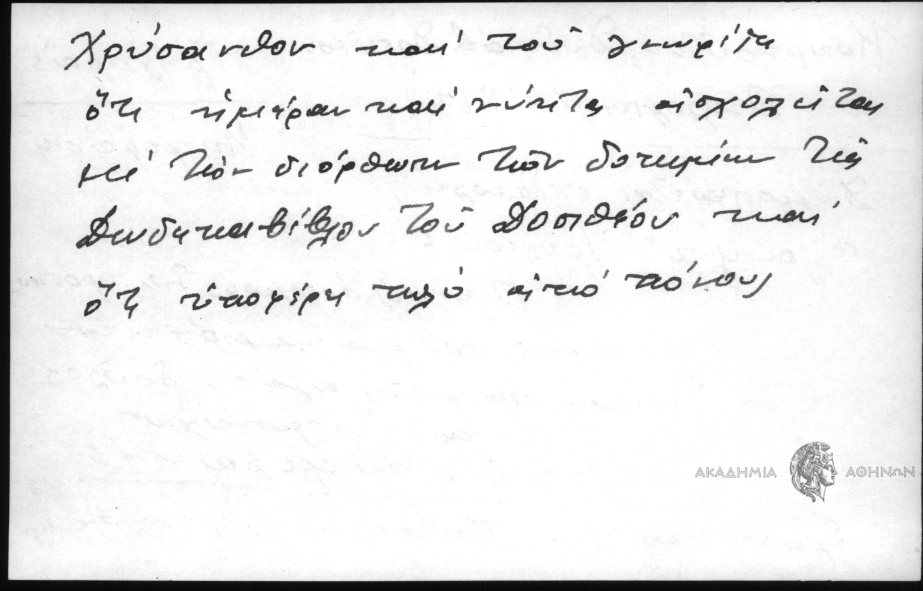 Χρύσανθον καί τοῦ γνωρίζει
ὅτι ἡμέραν καί νύκτα ἀσχολεῖται
μέ τήν διόρθωσιν τῶν δοκιμίων τῆς
Δωδεκαβίβλου τοῦ Δοσιθέου καί
ὅτι ὑποφέρει πολύ ἀπό πόνους
ΑΚΑΔΗΜΙΑ ΑΘΗΝΩΝ